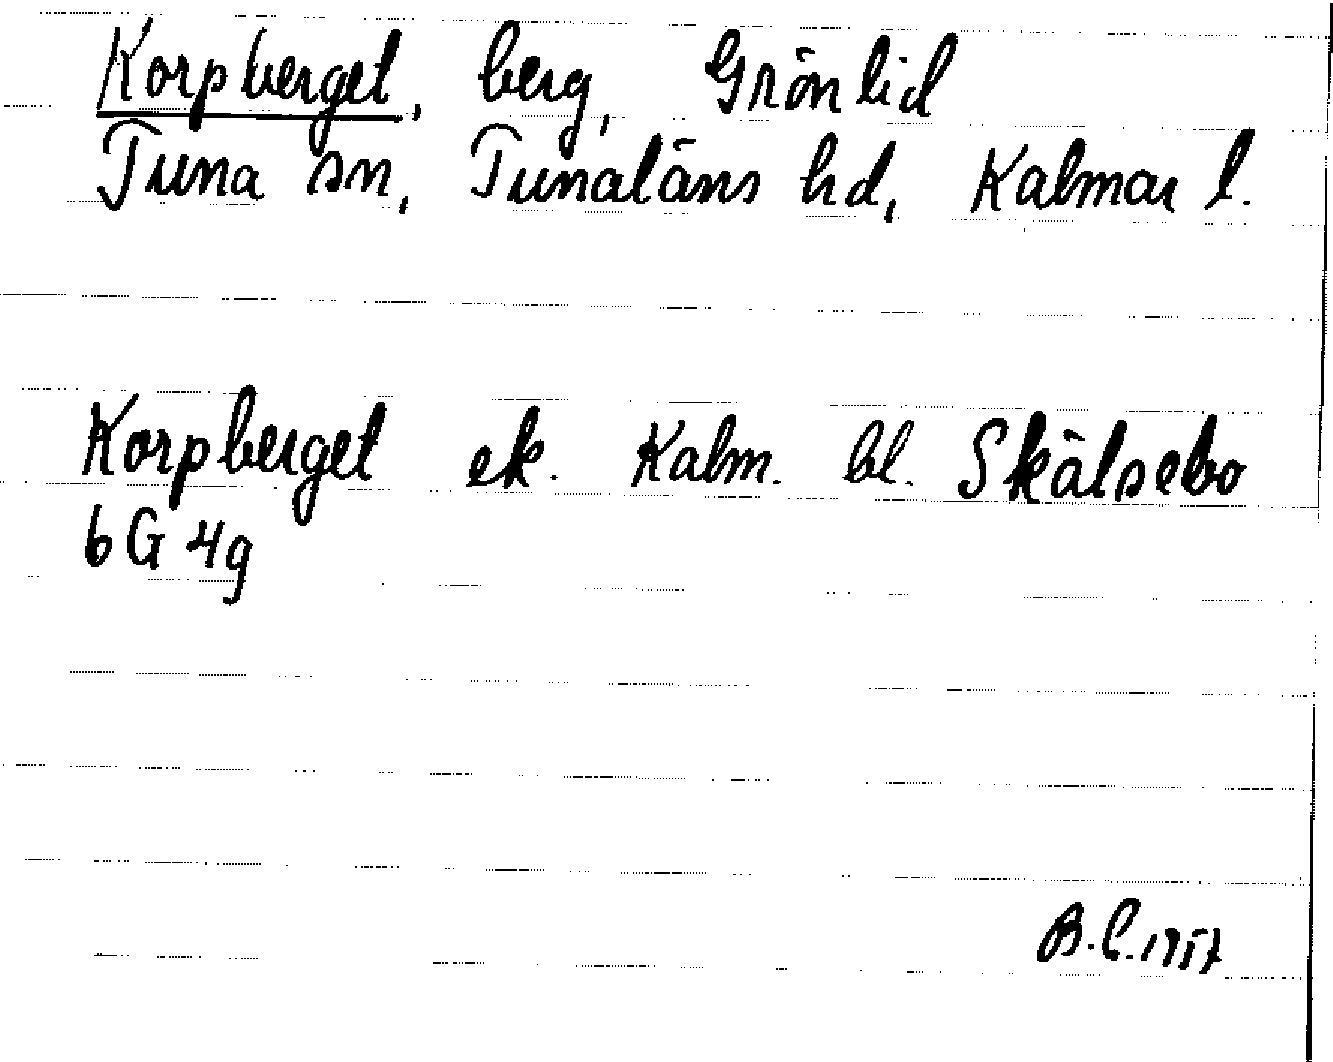 Korpberget, berg, Grönlid
Tuna sn, Tunaläns hd, Kalmar l.
Korpberget ek. Kalm. bl. Skälsebo
6G 4g
B.C. 1957